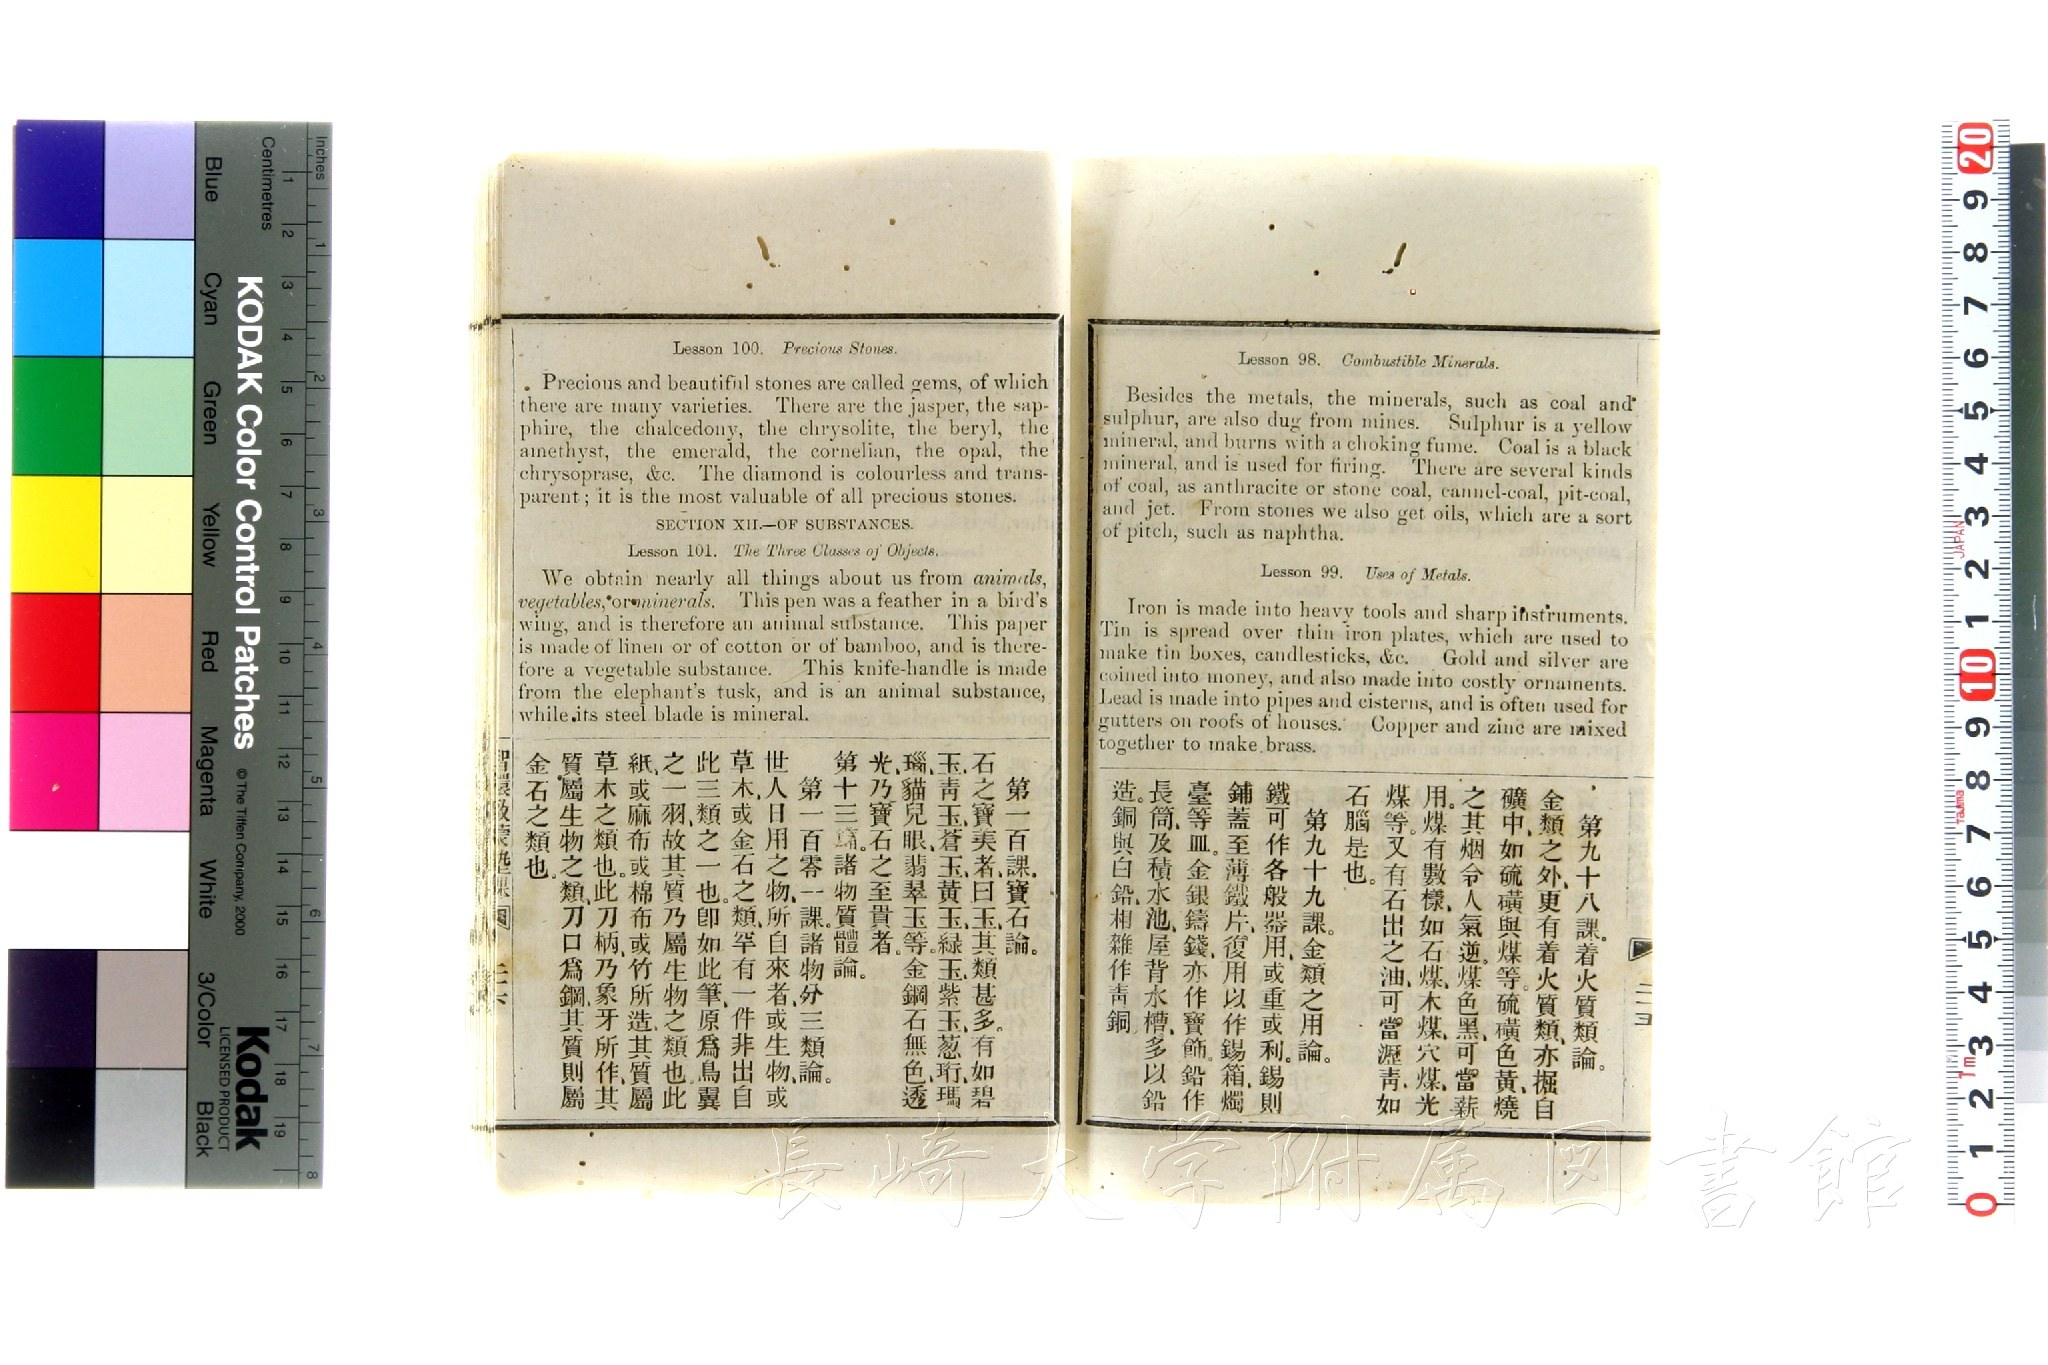 Lesson 98. Combustible Minerals.
Besides the metals, the minerals, such as coal and
sulphur, are also dug from mines. Sulphur is a yellow
mineral, and burns with a choking fume. Coal is a black
mineral, and is used for firing. There are several kinds
of coal, as anthracite or stone coal, cannel-coal, pit-coal,
and jet. From stones we also get oils, which are a sort
of pitch, such as naphtha.
Lesson 99. Uses of Metals.
Iron is made into heavy tools and sharp instruments.
Tin is spread over thin iron plates, which are used to
make tin boxes, candlesticks, &c. Gold and silver are
coined into money, and also made into costly ornaments.
Lead is made into pipes and cisterns, and is often used for
gutters on roofs of houses. Copper and zinc are mixed
together to make brass.
第九十八課。着火質類論。
金類之外、更有着火質類、亦掘自
礦中、如硫磺與煤等。硫磺色黃、燒
之其烟令人氣逆。煤色黑、可當薪
用。煤有數樣、如石煤、木煤、穴煤、光
煤等。又有石出之油、可當瀝靑、如
石腦是也。
第九十九課。金類之用論。
鐵可作各般器用、或重或利。錫則
鋪蓋至薄鐵片、復用以作錫箱、燭
臺等皿。金銀鑄錢、亦作寶飾。鉛作
長筒、及積水池、屋背水槽、多以鉛
造。銅與白鉛、相雜作靑銅
二五
Lesson 100. Precious Stones.
Precious and beautiful stones are called gems, of which
there are many varieties. There are the jasper, the sap-
phire, the chalcedony, the chrysolite, the beryl, the
amethyst, the emerald, the cornelian, the opal, the
chrysoprase, &c. The diamond is colourless and trans-
parent; it is the most valuable of all precious stones.
SECTION XII.—OF SUBSTANCES.
Lesson 101. The Three Classes of Objects.
We obtain nearly all things about us from animals,
vegetables, or minerals. This pen was a feather in a bird's
wing, and is therefore an animal substance. This paper
is made of linen or of cotton or of bamboo, and is there-
fore a vegetable substance. This knife-handle is made
from the elephant's tusk, and is an animal substance,
while its steel blade is mineral.
第一百課。寶石論。
石之寶美者、曰玉、其類甚多。有如碧
玉、靑玉、蒼玉、黃玉、緑玉、紫玉、葱珩、瑪
瑙、貓兒眼、翡翠玉等。金鋼石無色、透
光、乃寶石之至貴者。
第十三篇。諸物質體論。
第一百零一課。諸物分三類論。
世人日用之物、所自來者、或生物、或
草木、或金石之類、罕有一件非出自
此三類之一也。卽如此筆、原爲鳥翼
之一羽、故其質乃屬生物之類也。此
紙、或麻布、或棉布、或竹所造、其質屬
草木之類也。此刀柄、乃象牙所作、其
質屬生物之類、刀口爲鋼、其質則屬
金石之類也。
二六
Inches
Centimetres
1 2 3 4 5 6 7 8
1 2 3 4 5 6 7 8 9 10 11 12 13 14 15 16 17 18 19
KODAK Color Control Patches
© The Tiffen Company, 2000
Kodak
LICENSED PRODUCT
Blue
Cyan
Green
Yellow
Red
Magenta
White
3/Color
Black
20 9 8 7 6 5 4 3 2 1 10 9 8 7 6 5 4 3 2 1 0
JAPAN
Tajima
Tm
長崎大学附属図書館